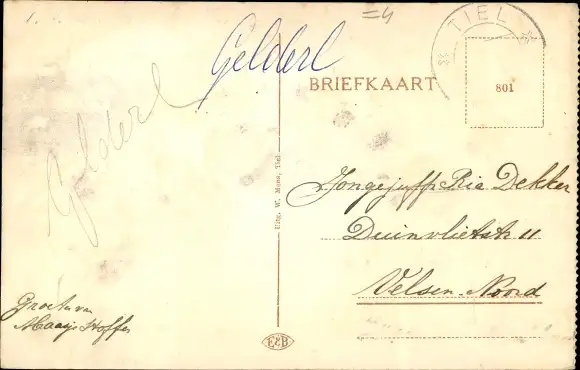 1.
=4
TIEL
Gelderl
BRIEFKAART
801
Gelderl
Uitg. W. Mons, Tiel
Jongejuffr Ria Dekker
Duinvlietstr 11
Velsen-Noord
Groeten van
Maasje Hoffer